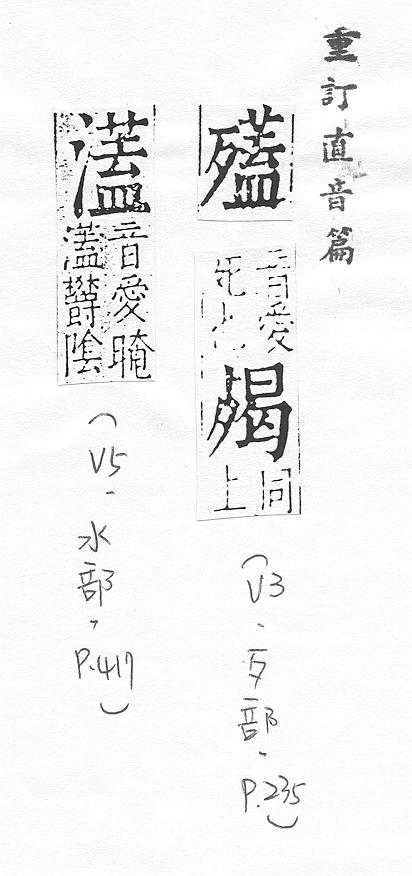 重訂直音篇
音愛
死
同
上
(V3、歹部、P.235)
濭
音愛晻
濭鬱陰
(V5、水部、P.417)